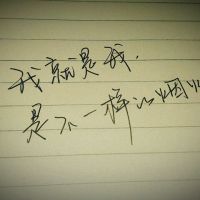 我就是我，
是不一样的烟火